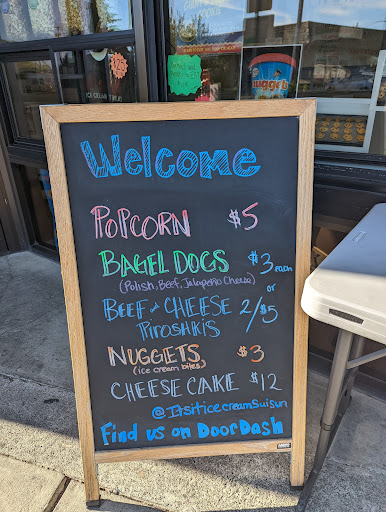 Welcome
POPCORN $5
BAGEL DOGS $3 each
(Polish, Beef, Jalapeño Cheese) or
BEEF & CHEESE 2/$5
PIROSHKIS
NUGGETS $3
(ice cream bites)
CHEESE CAKE $12
@Itsiticecreamsuisun
Find us on DoorDash